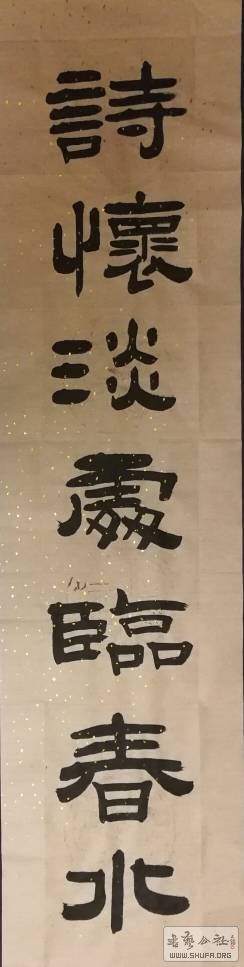 詩懷淡處臨春水
書藝公社
WWW.SHUFA.ORG